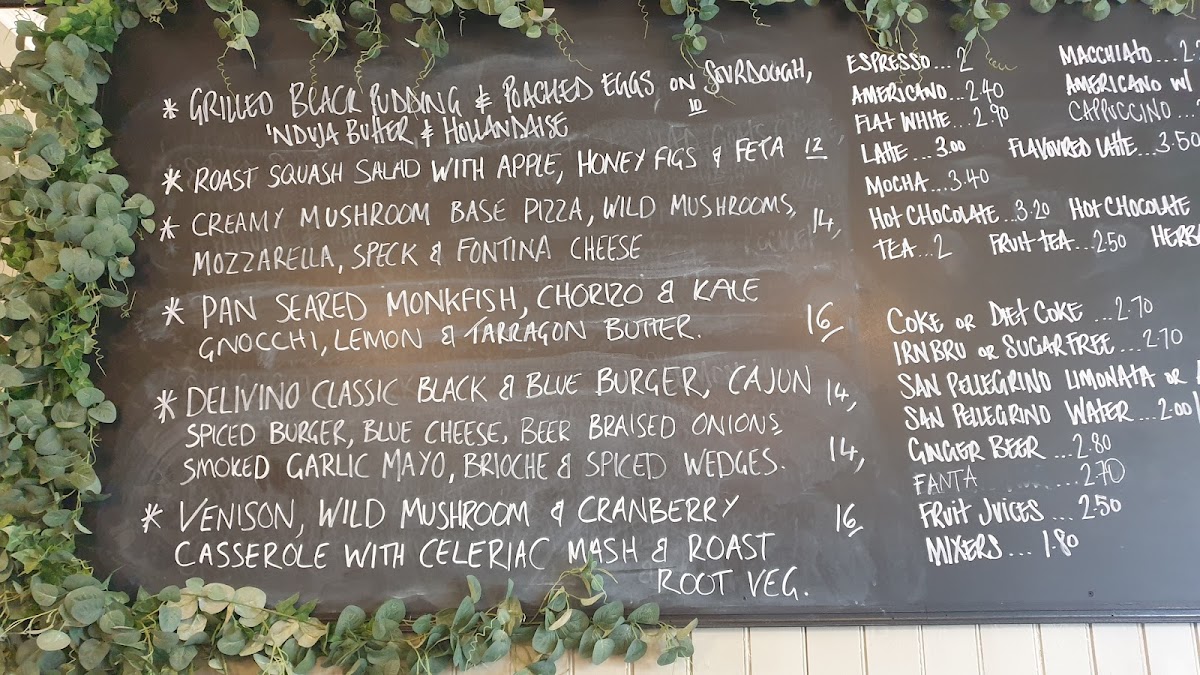 * GRILLED BLACK PUDDING & POACHED EGGS ON SOURDOUGH,
'NDUJA BUTTER & HOLLANDAISE 10
* ROAST SQUASH SALAD WITH APPLE, HONEY FIGS & FETA 12
* CREAMY MUSHROOM BASE PIZZA, WILD MUSHROOMS, 14,
MOZZARELLA, SPECK & FONTINA CHEESE
* PAN SEARED MONKFISH, CHORIZO & KALE
GNOCCHI, LEMON & TARRAGON BUTTER. 16
* DELIVINO CLASSIC BLACK & BLUE BURGER, CAJUN 14,
SPICED BURGER, BLUE CHEESE, BEER BRAISED ONIONS
SMOKED GARLIC MAYO, BRIOCHE & SPICED WEDGES. 14,
* VENISON, WILD MUSHROOM & CRANBERRY 16
CASSEROLE WITH CELERIAC MASH & ROAST
ROOT VEG.
ESPRESSO... 2 MACCHIATO ... 2.
AMERICANO...2.40 AMERICANO W/
FLAT WHITE ... 2.90 CAPPUCCINO ...
LATTE ... 3.00 FLAVOURED LATTE...3.50
MOCHA...3.40
HOT CHOCOLATE...3.20 HOT CHOCOLATE
TEA...2 FRUIT TEA...2.50
COKE OR DIET COKE ...2.70
IRN BRU OR SUGAR FREE ...2.70
SAN PELLEGRINO LIMONATA OR
SAN PELLEGRINO WATER ...2.00
GINGER BEER ...2.80
FANTA ..........2.70
FRUIT JUICES ... 2.50
MIXERS ... 1.80